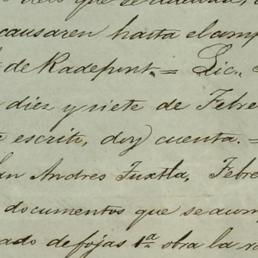 causaren hasta el comp
de Radepont.= Lic.
diez y siete de Febre
escrito, doy cuenta.=
an Andres Tuxtla, Febre
documentos que se acom
ado de fojas 1ª obra la r